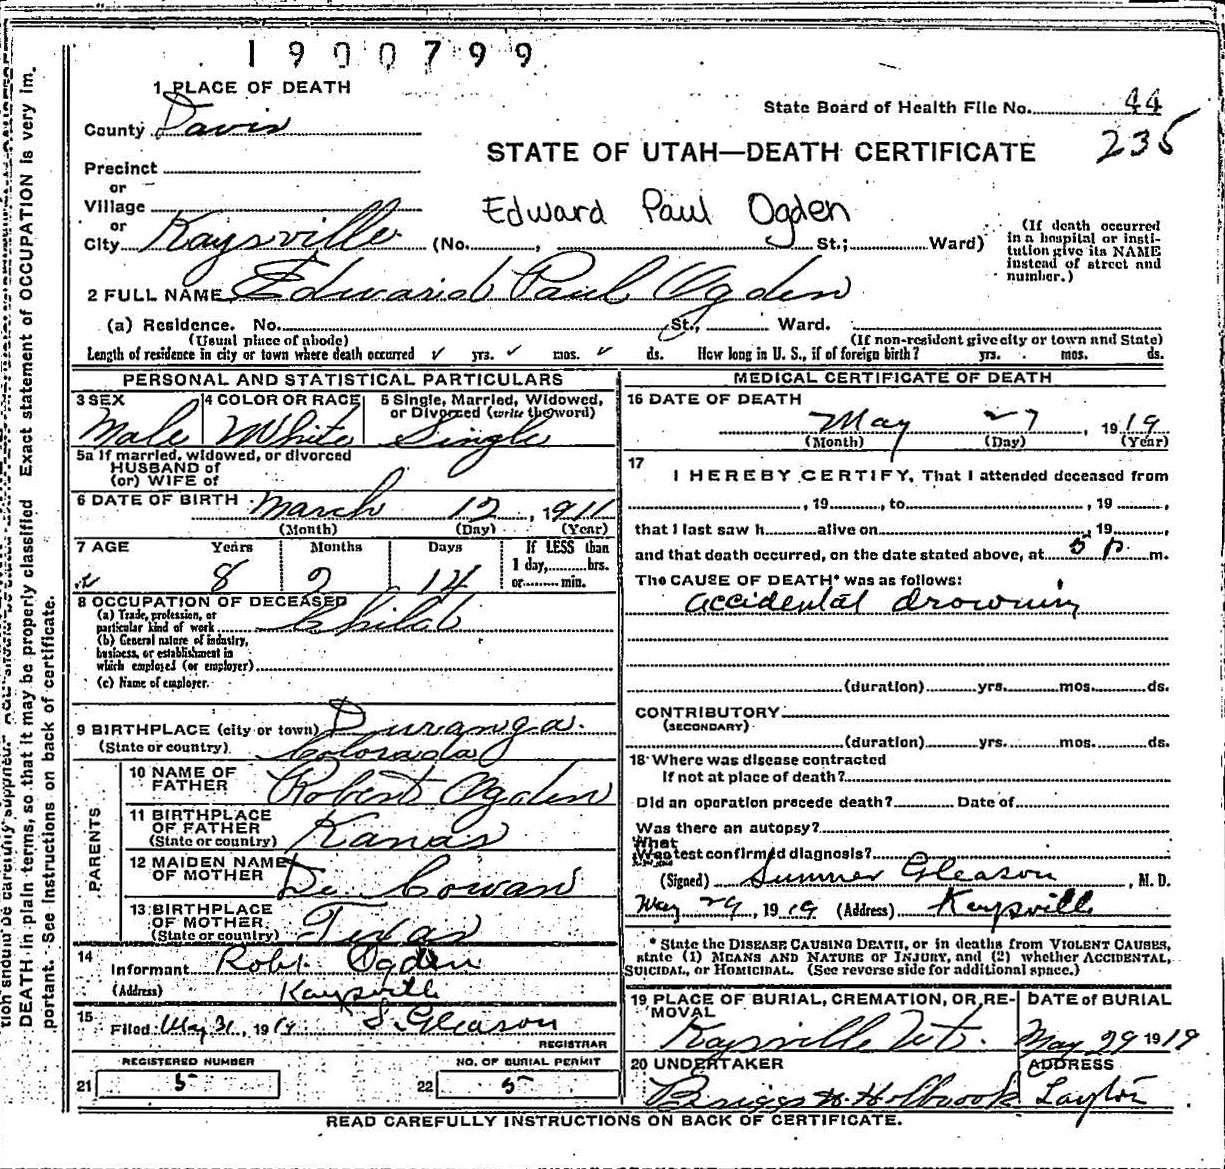 1900799
1 PLACE OF DEATH
State Board of Health File No. 44
County Davis
235
STATE OF UTAH—DEATH CERTIFICATE
Precinct
or
Village
Edward Paul Ogden
or
City Kaysville (No. , St.; Ward)
(If death occurred
in a hospital or insti-
tution give its NAME
instead of street and
number.)
2 FULL NAME Edward Paul Ogden
(a) Residence. No. St., Ward.
(Usual place of abode)
(If non-resident give city or town and State)
Length of residence in city or town where death occurred yrs. mos. ds. How long in U. S., if of foreign birth? yrs. mos. ds.
PERSONAL AND STATISTICAL PARTICULARS
3 SEX
Male
4 COLOR OR RACE
White
5 Single, Married, Widowed,
or Divorced (write the word)
Single
5a If married, widowed, or divorced
HUSBAND of
(or) WIFE of
6 DATE OF BIRTH March 12, 1911
(Month) (Day) (Year)
7 AGE Years Months Days If LESS than
1 day, hrs.
8 2 14 or min.
8 OCCUPATION OF DECEASED
(a) Trade, profession, or
particular kind of work Child
(b) General nature of industry,
business, or establishment in
which employed (or employer)
(c) Name of employer.
9 BIRTHPLACE (city or town) Duranga.
(State or country) Colorado
PARENTS
10 NAME OF
FATHER Robert Ogden
11 BIRTHPLACE
OF FATHER Kanas
(State or country)
12 MAIDEN NAME
OF MOTHER De Cowan
13 BIRTHPLACE
OF MOTHER
(State or country)
14
Informant Robt. Ogden
(Address) Kaysville
15
Filed May 31, 1919 S. Gleason
REGISTRAR
REGISTERED NUMBER
21 5
NO. OF BURIAL PERMIT
22 5
MEDICAL CERTIFICATE OF DEATH
16 DATE OF DEATH
May 27, 1919
(Month) (Day) (Year)
17
I HEREBY CERTIFY, That I attended deceased from
, 19 , to , 19 ,
that I last saw h alive on , 19 ,
and that death occurred, on the date stated above, at 5 P. m.
The CAUSE OF DEATH* was as follows:
accidental drowning
(duration) yrs. mos. ds.
CONTRIBUTORY
(SECONDARY)
(duration) yrs. mos. ds.
18 Where was disease contracted
If not at place of death?
Did an operation precede death? Date of
Was there an autopsy?
What
test confirmed diagnosis?
(Signed) Sumner Gleason, M. D.
May 29, 1919 (Address) Kaysville
* State the DISEASE CAUSING DEATH, or in deaths from VIOLENT CAUSES,
state (1) MEANS AND NATURE OF INJURY, and (2) whether ACCIDENTAL,
SUICIDAL, or HOMICIDAL. (See reverse side for additional space.)
19 PLACE OF BURIAL, CREMATION, OR RE-
MOVAL
Kaysville Ut.
DATE of BURIAL
May 29 1919
20 UNDERTAKER
Briggs H. Holbrook
ADDRESS
Layton
READ CAREFULLY INSTRUCTIONS ON BACK OF CERTIFICATE.
tion should be carefully supplied.
DEATH in plain terms, so that it may be properly classified Exact statement of OCCUPATION is very im.
portant. See Instructions on back of certificate.